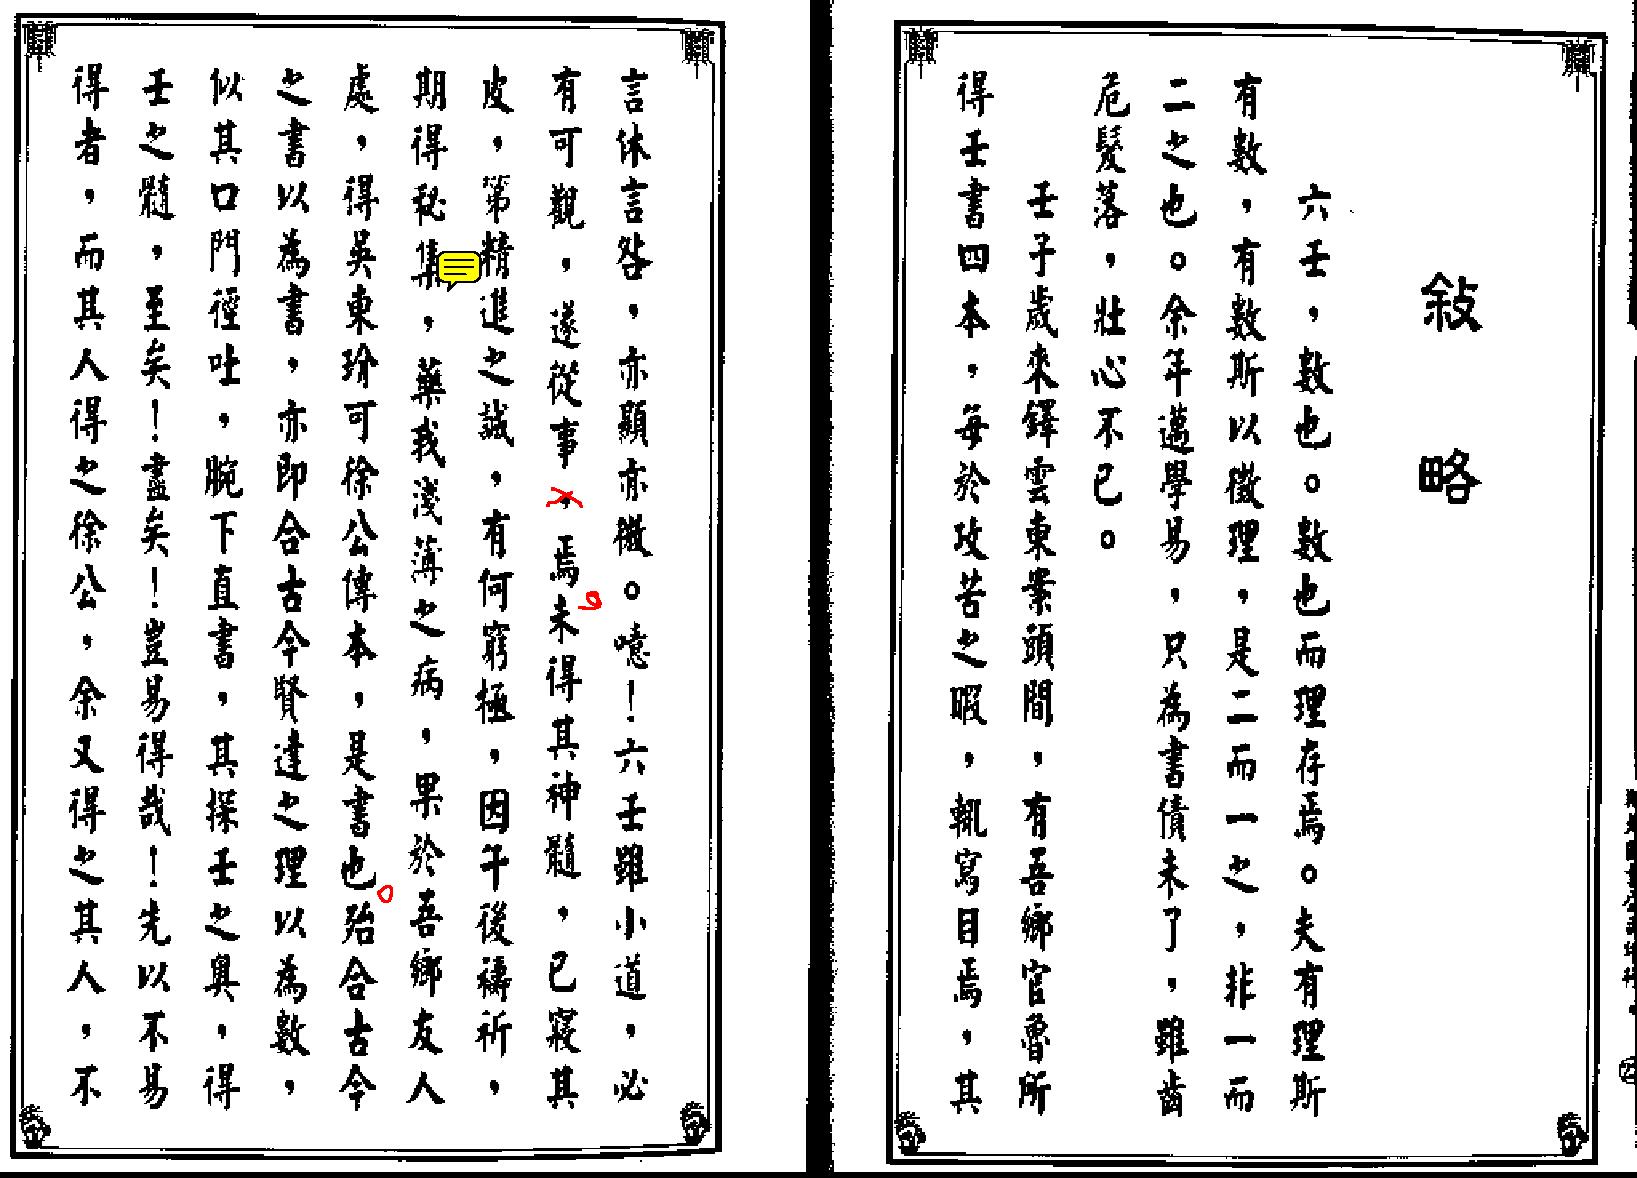 敍略
六壬，數也。數也而理存焉。夫有理斯
有數，有數斯以徵理，是二而一之，非一而
二之也。余年邁學易，只為書債未了，雖齒
危髮落，壯心不已。
壬子歲來鐸雲東業頭間，有吾鄉官魯所
得壬書四本，每於攻苦之暇，輒寫目焉，其
言休言咎，亦顯亦微。噫！六壬雖小道，必
有可觀，遂從事，焉。未得其神髓，已寢其
皮，第精進之誠，有何窮極，因午後禱祈，
期得秘集，藥我淺薄之病，果於吾鄉友人
處，得吳東玢可徐公傳本，是書也。殆合古今
之書以為書，亦即合古今賢達之理以為數，
似其口門徑吐，腕下直書，其探壬之奧，得
壬之髓，至矣！盡矣！豈易得哉！先以不易
得者，而其人得之徐公，余又得之其人，不